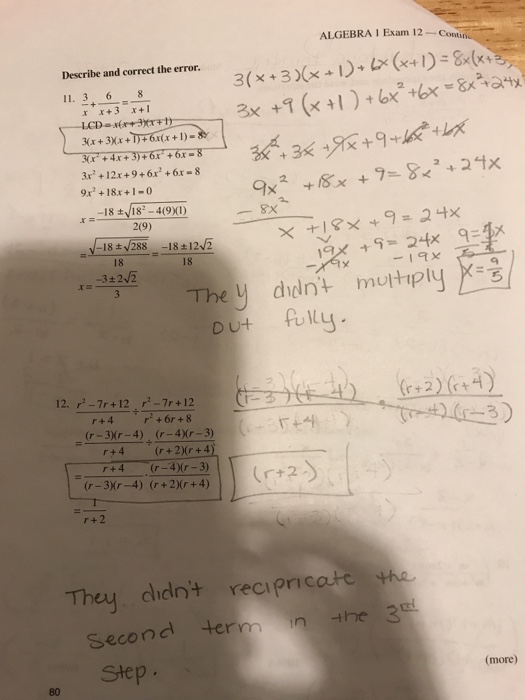 ALGEBRA I Exam 12 — Contin
Describe and correct the error.
11. 3/x + 6/(x+3) = 8/(x+1)
LCD = x(x+3)(x+1)
3(x+3)(x+1)+6x(x+1) = 8
3(x²+4x+3)+6x²+6x = 8
3x²+12x+9+6x²+6x = 8
9x²+18x+1 = 0
x = (-18 ± √(18² - 4(9)(1)))/2(9)
= √(-18 ± √288)/18 = (-18 ± 12√2)/18
x = (-3 ± 2√2)/3
3(x+3)(x+1)+6x(x+1) = 8x(x+3)
3x+9(x+1)+6x²+6x = 8x²+24x
3x²+3x+9x+9+6x²+6x
9x²+18x+9 = 8x²+24x
-8x²
x+18x+9 = 24x
19x+9 = 24x
-19x -19x
9 = 5x
x = 9/5
They didn't multiply
out fully.
12. (r²-7r+12)/(r+4) ÷ (r²-7r+12)/(r²+6r+8)
= (r-3)(r-4)/(r+4) ÷ (r-4)(r-3)/(r+2)(r+4)
= (r+4)/(r-3)(r-4) · (r-4)(r-3)/(r+2)(r+4)
= 1/(r+2)
(r-3)(r-4)/(r+4) · (r+2)(r+4)/(r-4)(r-3)
(r+2)
They didn't recipricate the
second term in the 3rd
step.
(more)
80